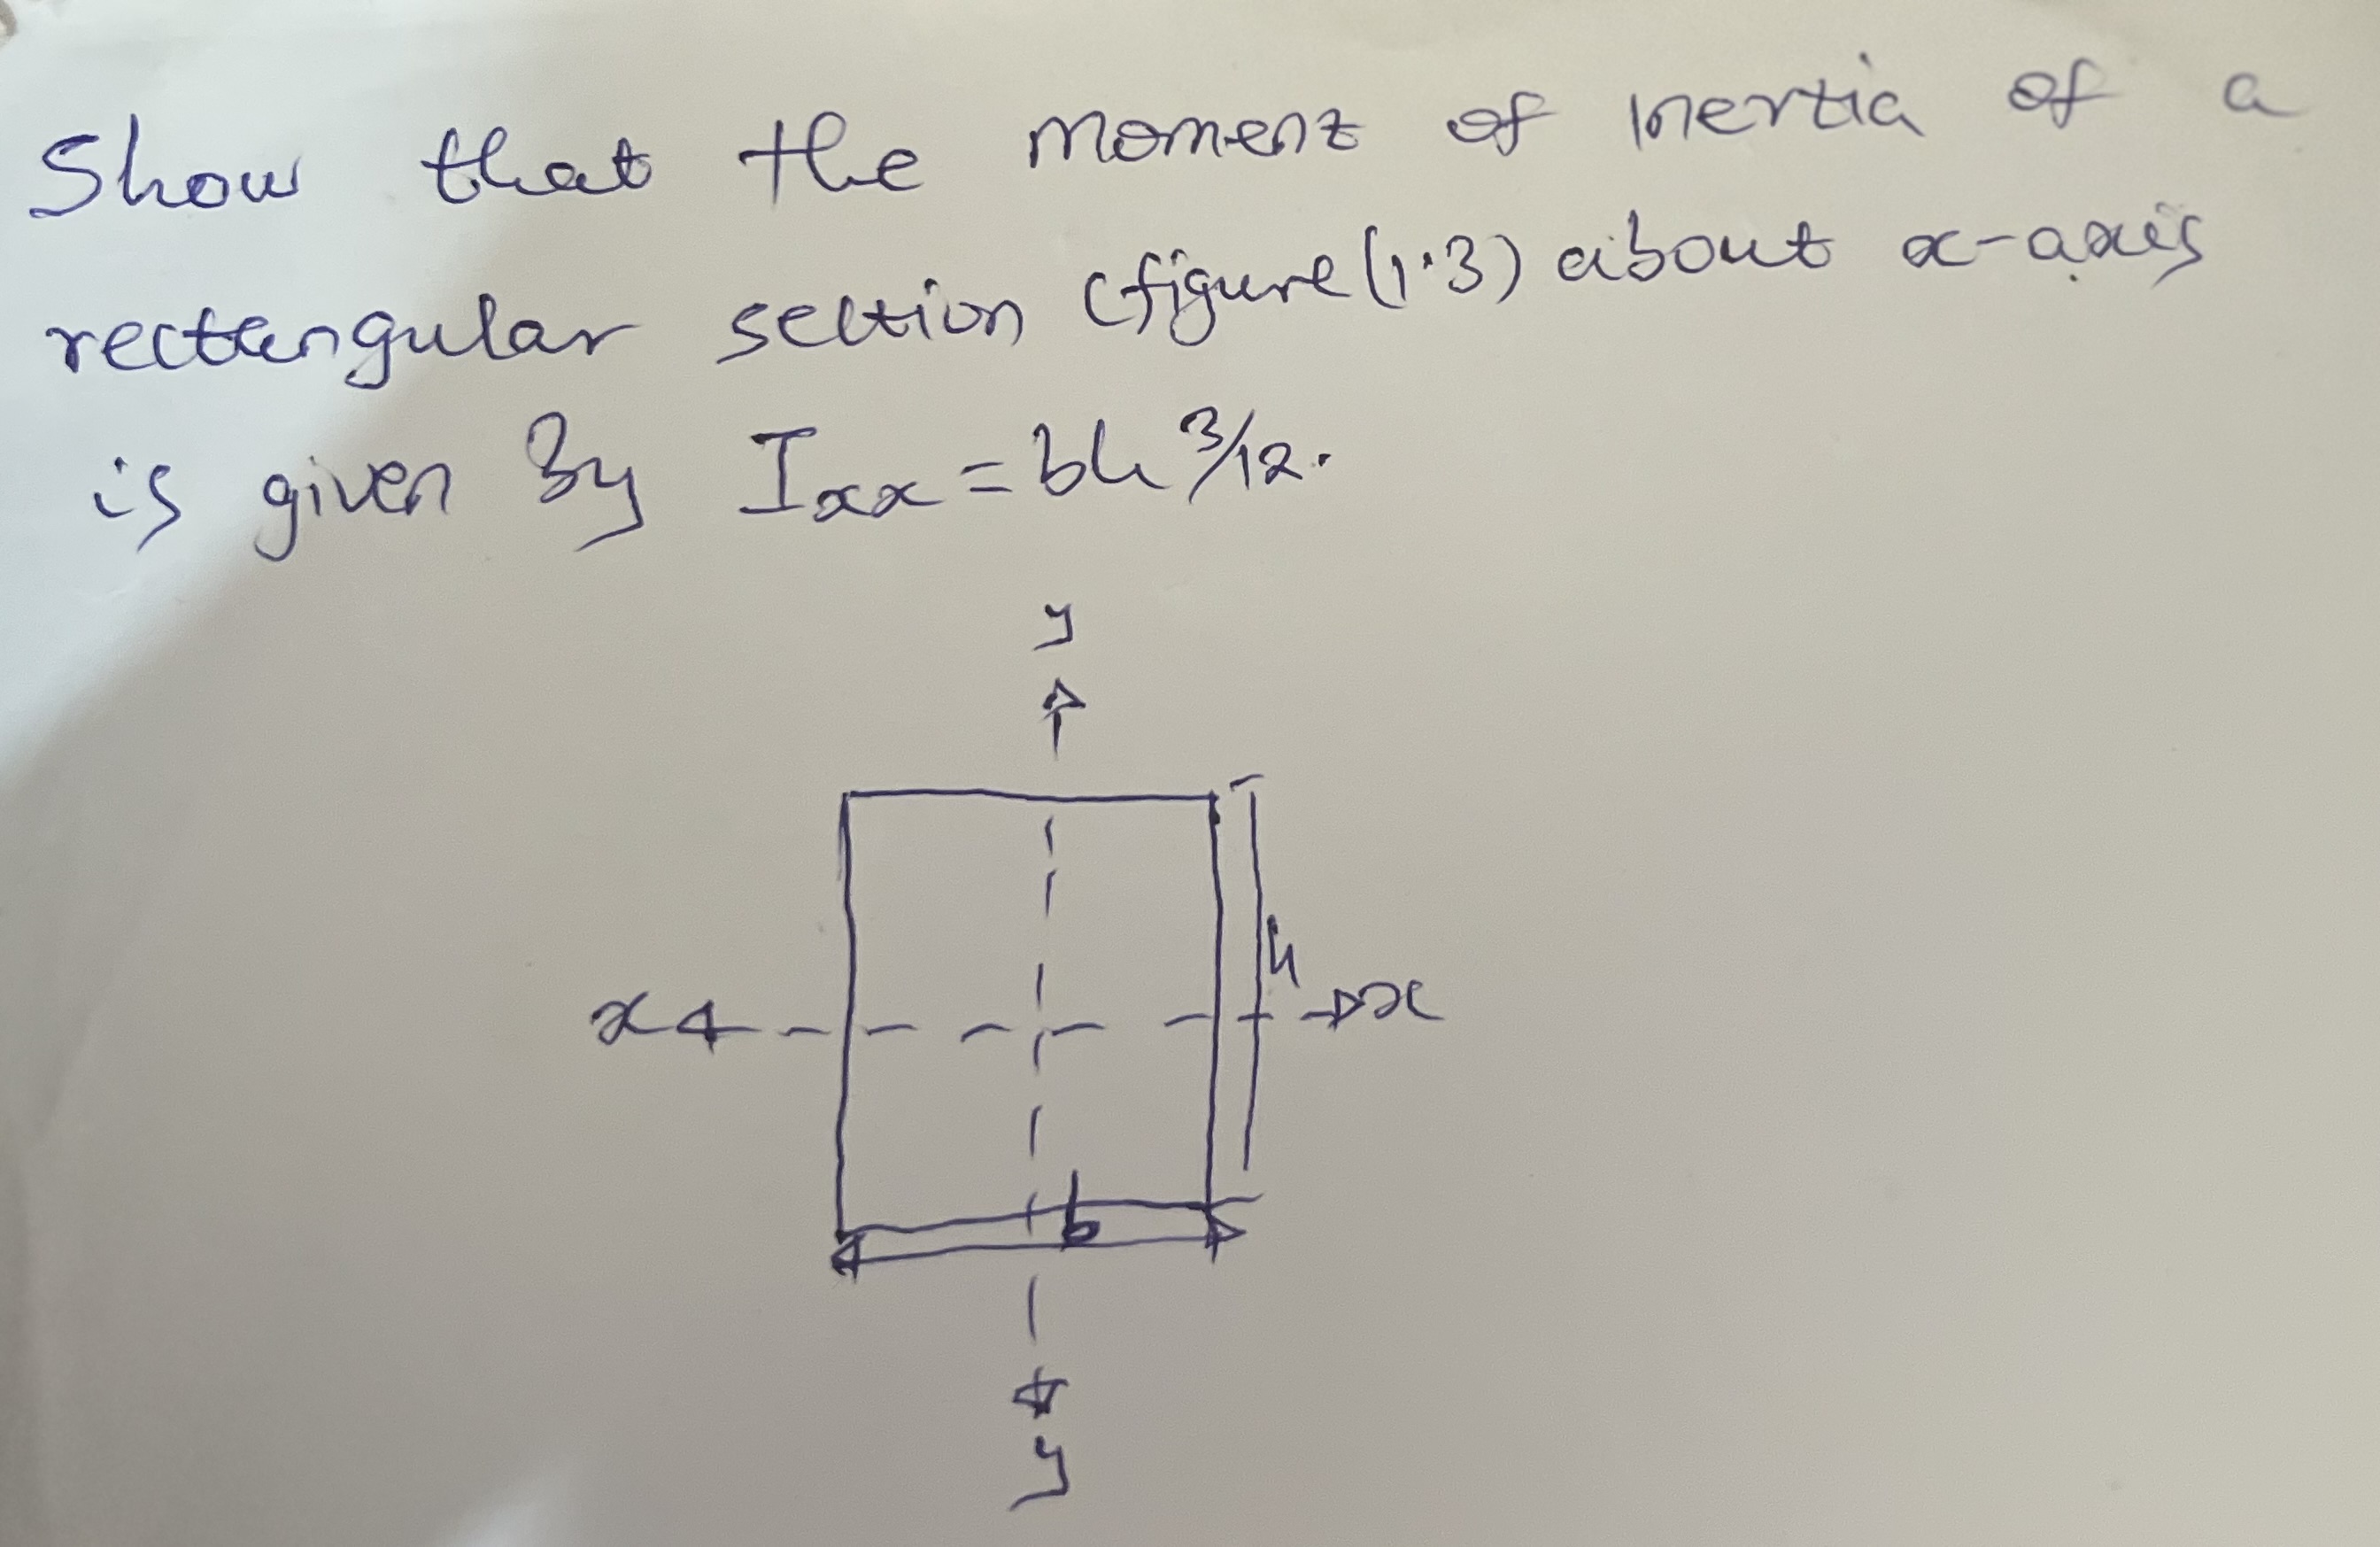 Show that the moment of inertia of a
rectangular section (figure(1.3) about x-axis
is given by Ixx = bh 3/12.
y
h
x x
b
y